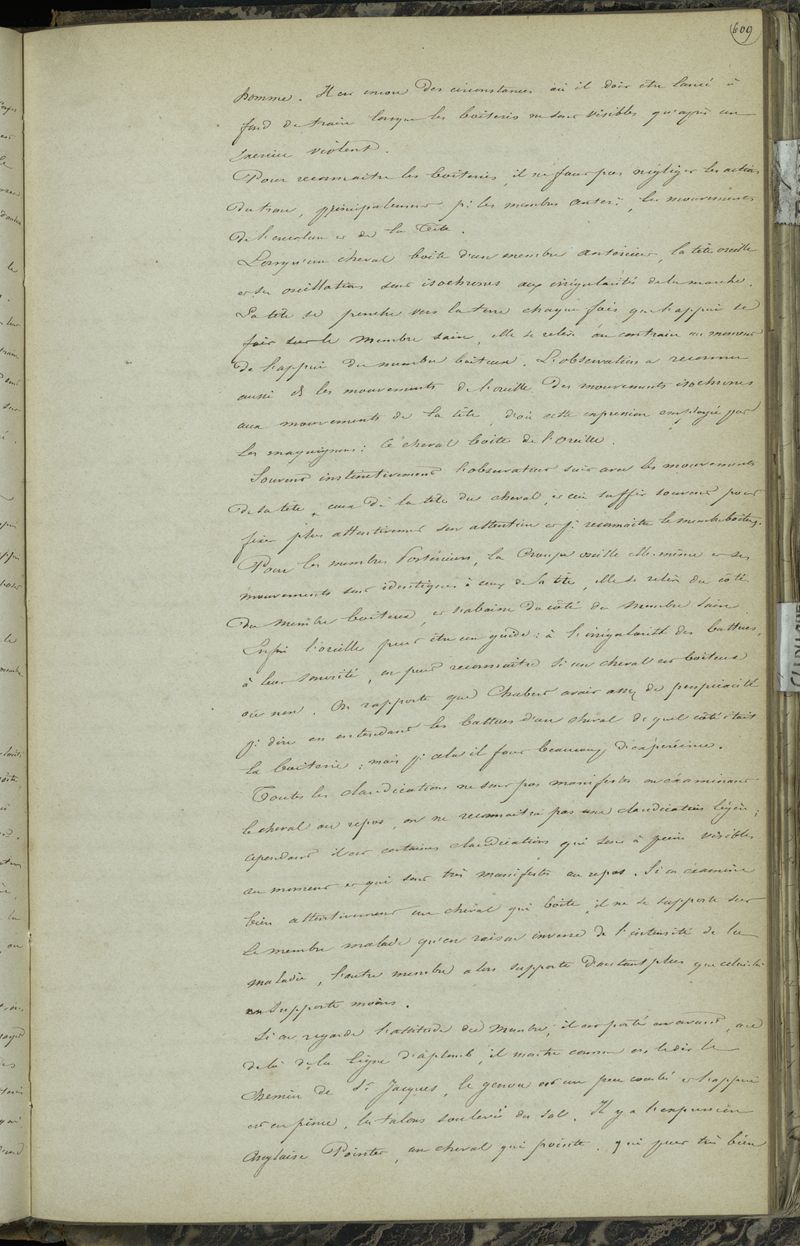 609
homme. Il est encore des circonstances où il doit être lancé à
fond de train lorsque les boiteries ne sont visibles qu'après un
exercice violent.
Pour reconnaitre les boiteries, il ne faut pas négliger les actions
du tronc, principalement pr les membres antérs, les mouvements
de l'encolure et de la Tête.
Lorsqu'un cheval boite d'un membre antérieur, la tête oscille
et ses oscillations sont isochrones aux irrégularités de la marche.
La tête se penche vers la terre chaque fois que l'appui se
fait sur le membre sain, elle se relève au contraire au moment
de l'appui du membre boiteux. L'observation a reconnu
aussi ds les mouvements de l'oreille des mouvements isochrones
aux mouvements de la tête, d'où cette expression employée par
les maquignons: Ce cheval boite de l'oreille.
Souvent instinctivement l'observateur suit avec les mouvements
de sa tête, ceux de la tête du cheval, et ceci suffit souvent pour
fixer plus attentivement son attention et pr reconnaitre le membre boiteux.
Pour les membres Postérieurs, la Croupe oscille elle-même et ses
mouvements sont identiques à ceux de la tête, elle se relève du côté
du membre boiteux, et s'abaisse du côté du membre sain.
Enfin l'oreille peut être un guide: à l'irrégularité des battues,
à leur sonorité, on peut reconnaître si un cheval est boiteux
ou non. On rapporte que Chabert avait assez de perspicacité
pr dire en entendant les battues d'un cheval de quel côté était
la boiterie; mais pr cela il faut beaucoup d'expérience.
Toutes les claudications ne sont pas manifestes en examinant
le cheval au repos, on ne reconnaitra pas une claudication légère;
cependant il est certaines claudications qui sont à peine visibles
au moment et qui sont très manifestes au repos. Si on examine
bien attentivement un cheval qui boite, il ne se supporte sur
le membre malade qu'en raison inverse de l'intensité de la
maladie, l'autre membre alors supporte d'autant plus que celui-là
en supporte moins.
Si on regarde l'attitude du membre, il est porté en avant, au
delà de la ligne d'aplomb, il montre comme on le dit le
chemin de St Jacques, le genou est un peu courbé et l'appui
est en pince, les talons soulevés du sol. Il y a l'expression
Anglaise Pointer, un cheval qui pointe, qui peut très bien